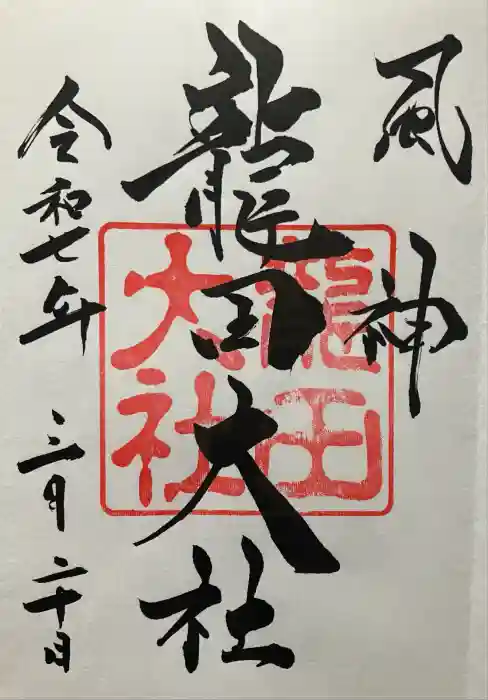 風神
龍田大社
龍田
大社
令和七年 三月二十日